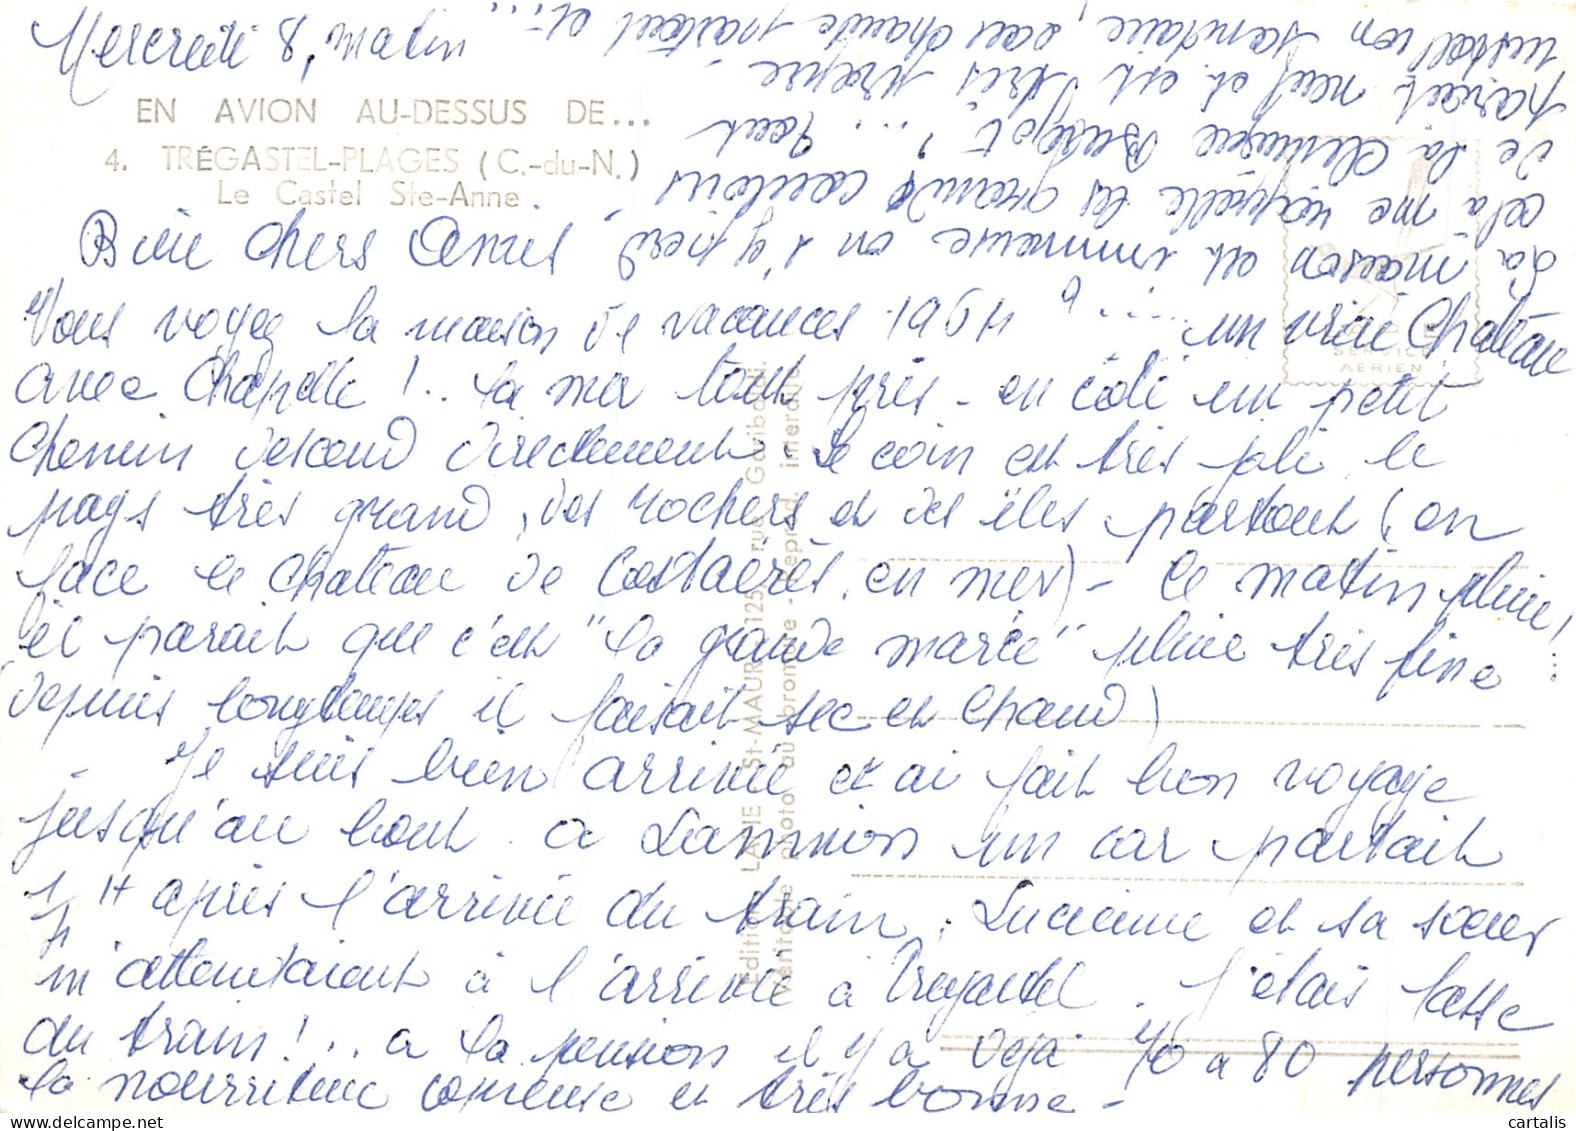 Mercredi 8, matin
EN AVION AU-DESSUS DE...
4. TRÉGASTEL-PLAGES (C.-du-N.)
Le Castel Ste-Anne.
Bien chers Amis
Vous voyez la maison de vacances 1964 ..... un vrai Chateau
avec Chapelle !.. La mer tout près - en coté un petit
chemin descend directement. Le coin est très joli le
pays très grand, des rochers et des îles partout (en
face le chateau de Costaérès en mer) - Ce matin pluie !
il parait que c'est "la grande marée" pluie très fine ...
(depuis longtemps il faisait sec et chaud)
- Je suis bien arrivée et ai fait bon voyage
jusqu'au bout. a Lannion un car partait
1 H après l'arrivée du train. Lucienne et sa soeur
m'attendaient à l'arrivée à Tregastel. J'étais lasse
du train !.. a la pension il y a déjà 70 a 80 personnes
la nourriture copieuse et très bonne -
La maison est immense on s'y perd
cela me rappelle les grands couloirs
de la Clinique !... Tout
parait neuf et est très propre -
installation sanitaire, eau chaude partout et ...
Editions LAPIE St-MAUR 125, rue Garibaldi.
Véritable photo au bromure - Reprod. interdite
SERVICE
AERIEN
cartalis